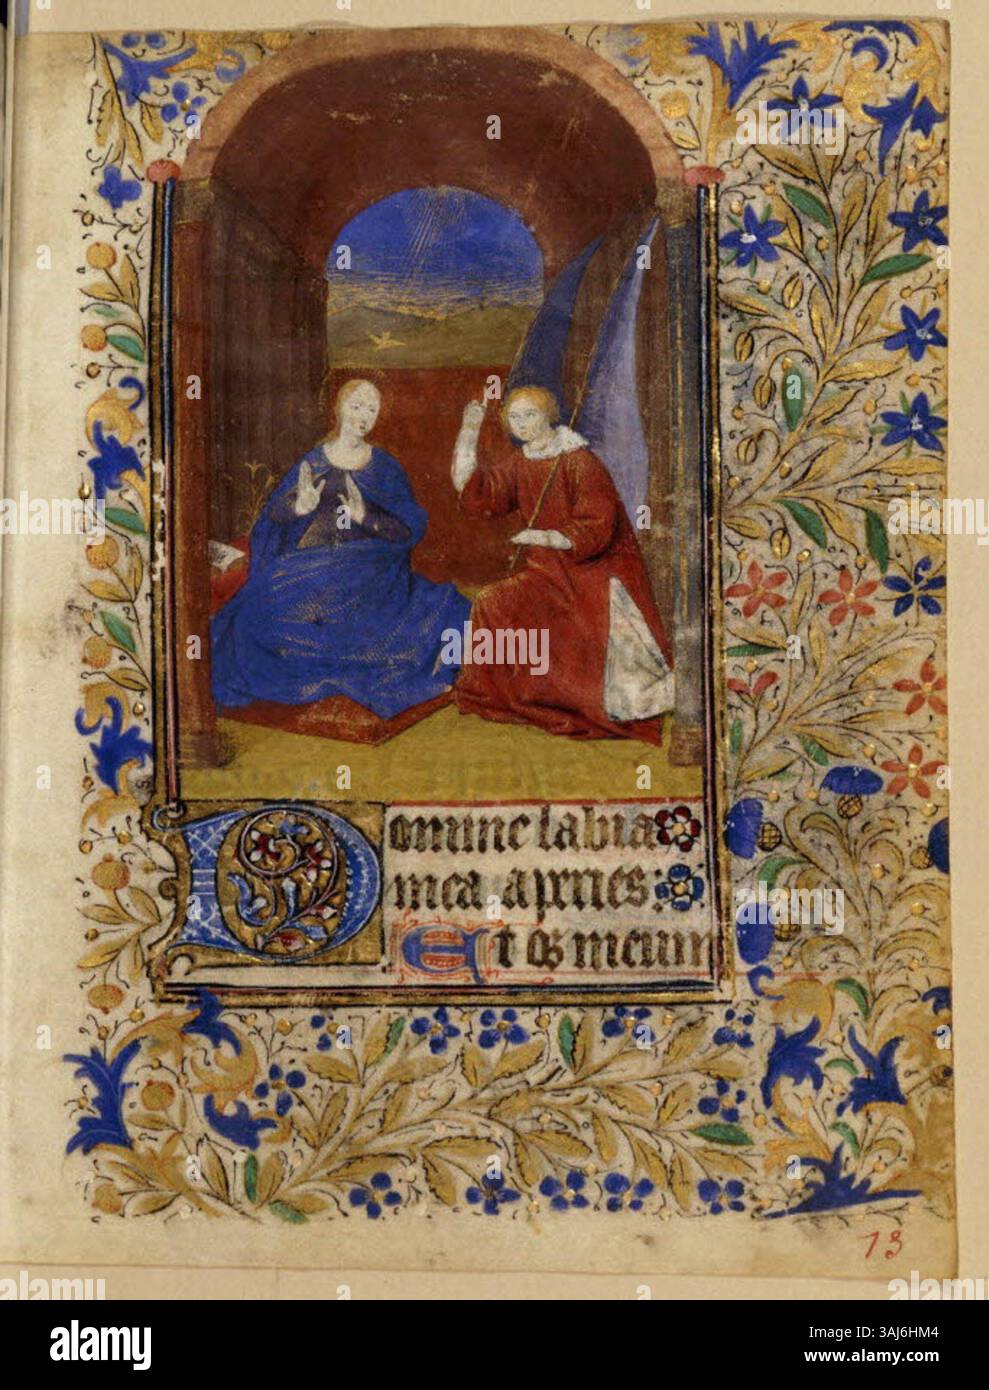 Domine labia
mea apries:
Et os meum
13
a
alamy
Image ID: 3AJ6HM4
www.alamy.com